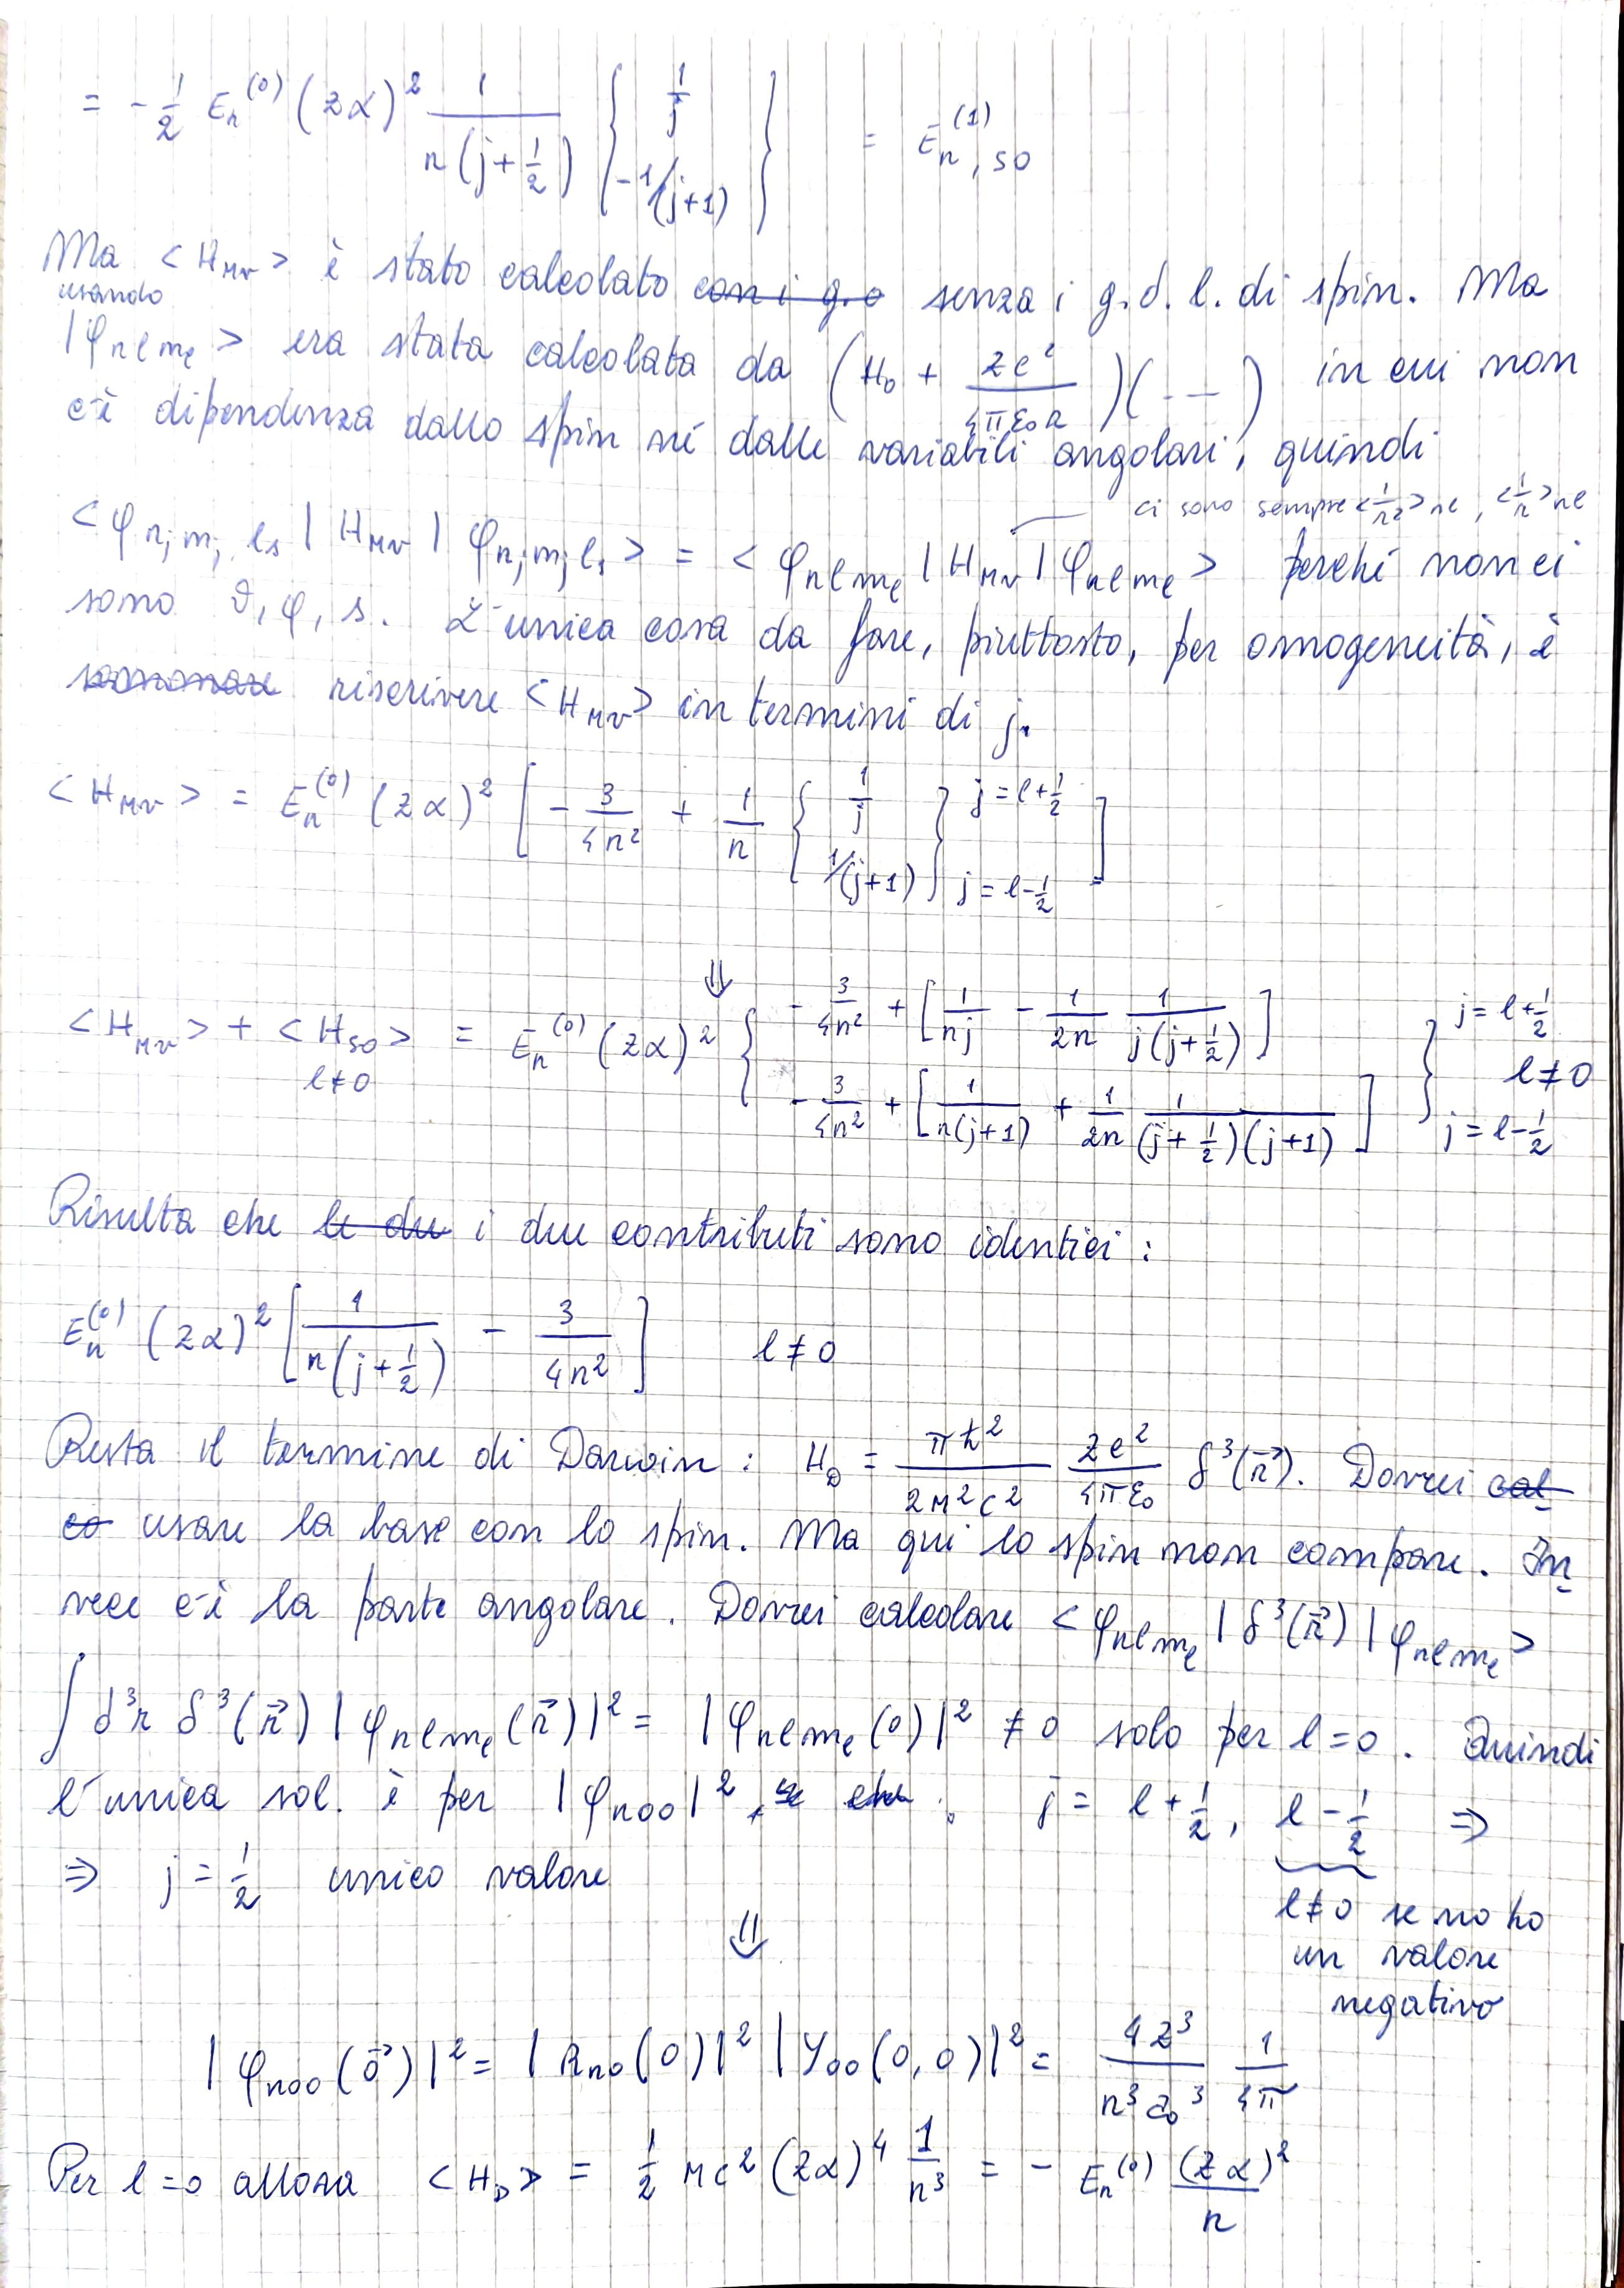 = - 1/2 E_n^(0) (zα)^2 1/(n(j+1/2)) { 1/j ; -1/(j+1) } = E_{n,so}^(1)
Ma <H_MV> è stato calcolato ~~con i g.o~~ senza i g.d.l. di spin. Ma
usando
|φ_{nlm_l}> era stata calcolata da (H_0 + ze²/(4πε_0 r))(- - -) in cui non
c'è dipendenza dallo spin né dalle variabili angolari, quindi
ci sono sempre <1/r²>_nl, <1/r>_nl
<φ_{njm_jls}|H_MV|φ_{njm_jls}> = <φ_{nlm_l}|H_MV|φ_{nlm_l}> perché non ci
sono θ, φ, s. L'unica cosa da fare, piuttosto, per omogeneità, è
riscrivere <H_MV> in termini di j.
<H_MV> = E_n^(0) (zα)^2 [ - 3/(4n²) + 1/n { 1/j ; 1/(j+1) } j = l+1/2 ; j = l-1/2 ]
⇓
<H_MV> + <H_SO> = E_n^(0) (zα)^2 { - 3/(4n²) + [ 1/(nj) - 1/(2n) 1/(j(j+1/2)) ] j = l+1/2
l≠0 - 3/(4n²) + [ 1/(n(j+1)) + 1/(2n) 1/((j+1/2)(j+1)) ] } l≠0 j = l-1/2
Risulta che ~~le due~~ i due contributi sono identici:
E_n^(0) (zα)^2 [ 1/(n(j+1/2)) - 3/(4n²) ] l≠0
Resta il termine di Darwin: H_D = πħ²/(2M²c²) ze²/(4πε_0) δ³(r⃗). Dovrei ~~cal-~~
~~co~~ usare la base con lo spin. Ma qui lo spin non compare. In-
vece c'è la parte angolare. Dovrei calcolare <φ_{nlm_l}|δ³(r⃗)|φ_{nlm_l}>
∫ d³r δ³(r⃗) |φ_{nlm_l}(r⃗)|² = |φ_{nlm_l}(0)|² ≠ 0 solo per l=0. Quindi
l'unica sol. è per |φ_{n00}|² : j = l+1/2, l-1/2 ⇒
⇒ j = 1/2 unico valore
l≠0 se no ho
un valore
negativo
⇓
|φ_{n00}(0⃗)|² = |R_{n0}(0)|² |Y_{00}(0,0)|² = 4z³/(n³a_0³) 1/(4π)
Per l=0 allora <H_D> = 1/2 Mc² (zα)^4 1/n³ = - E_n^(0) (zα)²/n